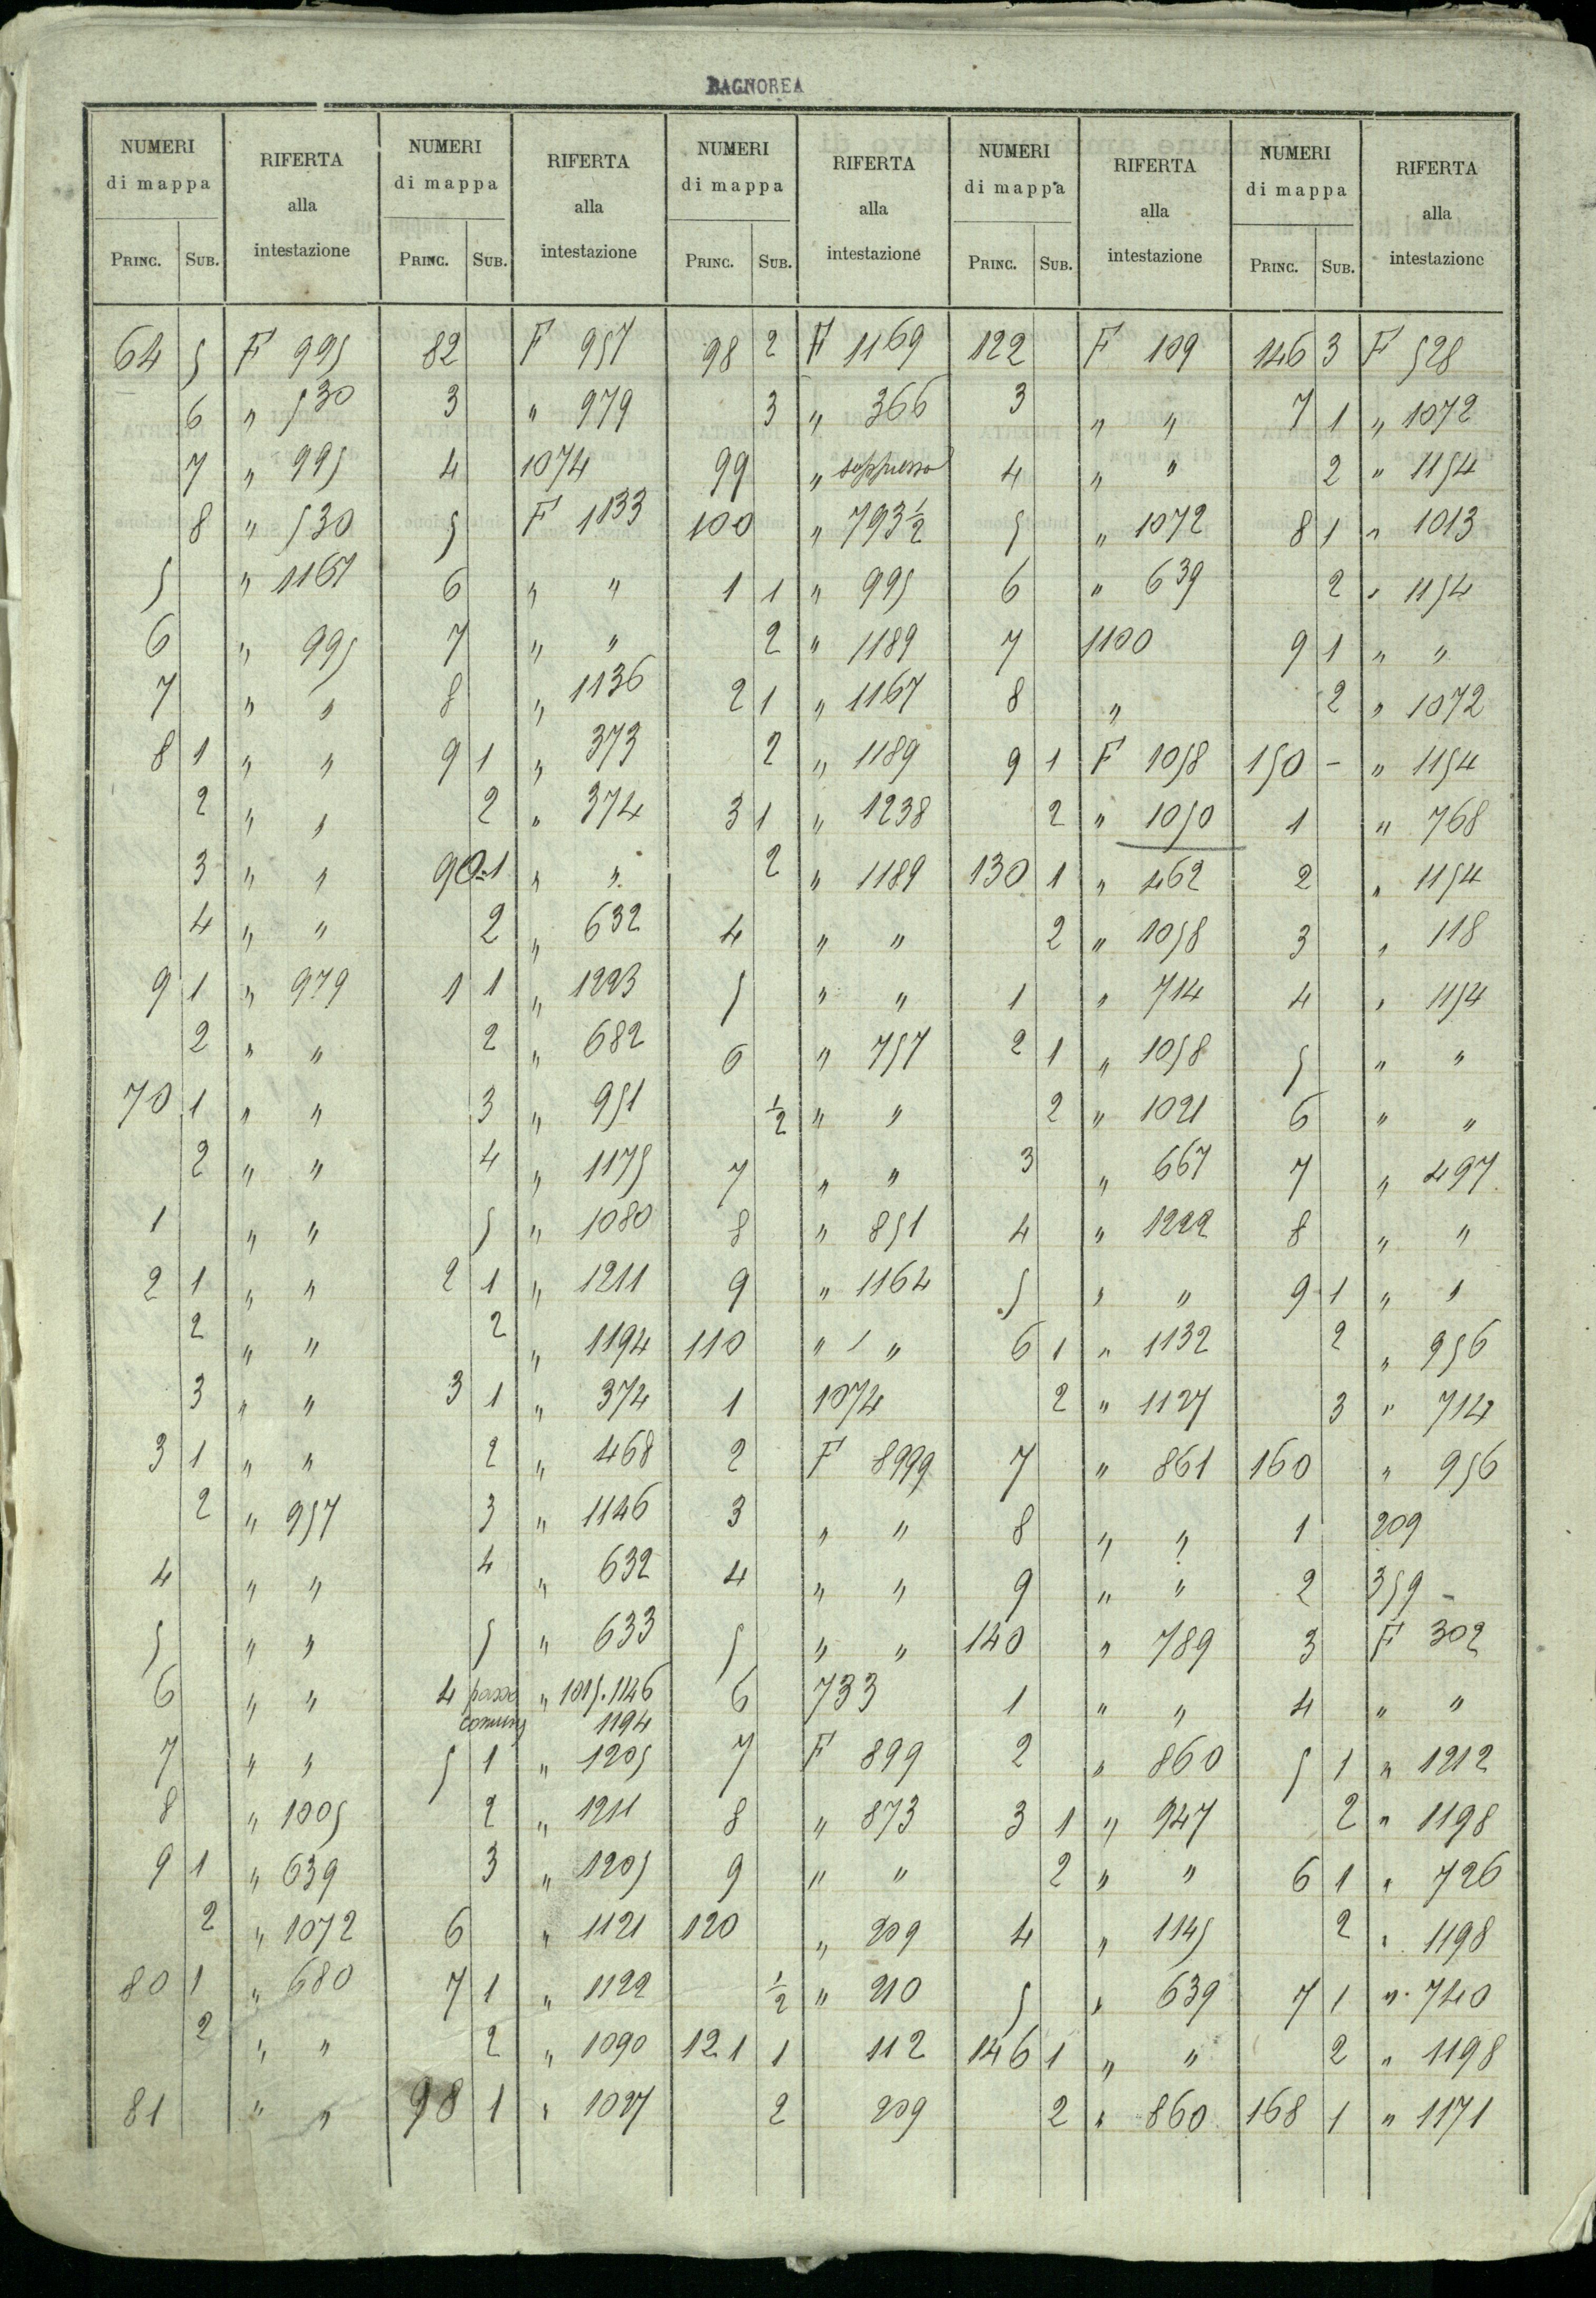 BAGNOREA
NUMERI di mappa RIFERTA alla intestazione NUMERI di mappa RIFERTA alla intestazione NUMERI di mappa RIFERTA alla intestazione NUMERI di mappa RIFERTA alla intestazione NUMERI di mappa RIFERTA alla intestazione
PRINC. SUB. PRINC. SUB. PRINC. SUB. PRINC. SUB. PRINC. SUB.
64 5 F 995 82 F 957 98 2 F 1169 122 F 109 146 3 F 528
6 " 530 3 " 979 3 " 366 3 " " 7 1 " 1072
7 " 995 4 1074 99 " soppresso 4 " " 2 " 1154
8 " 530 5 F 1133 100 " 793½ 5 " 1072 8 1 " 1013
5 " 1167 6 " " 1 1 " 995 6 " 639 2 " 1154
6 " 995 7 " " 2 " 1189 7 1100 9 1 " "
7 " " 8 " 1136 2 1 " 1167 8 " 2 " 1072
8 1 " " 9 1 " 373 2 " 1189 9 1 F 1058 150 – " 1154
2 " " 2 " 374 3 1 " 1238 2 " 1050 1 " 768
3 " " 90 1 " " 2 " 1189 130 1 " 462 2 " 1154
4 " " 2 " 632 4 " " 2 " 1058 3 " 118
9 1 " 979 1 1 " 1223 5 " " 1 " 714 4 " 1154
2 " " 2 " 682 6 " 757 2 1 " 1058 5 " "
70 1 " " 3 " 951 ½ " " 2 " 1021 6 " "
2 " " 4 " 1175 7 " " 3 " 667 7 " 497
1 " " 5 " 1080 8 " 851 4 " 1222 8 " "
2 1 " " 2 1 " 1211 9 " 1164 5 " " 9 1 " "
2 " " 2 " 1194 110 " " 6 1 " 1132 2 " 956
3 " " 3 1 " 374 1 1074 2 " 1127 3 " 714
3 1 " " 2 " 468 2 F 8999 7 " 861 160 " 956
2 " 957 3 " 1146 3 " " 8 " " 1 209
4 " " 4 " 632 4 " " 9 " " 2 359
5 " " 5 " 633 5 " " 140 " 789 3 F 302
6 " " 4 passo comune " 1015.1146 1194 6 733 1 " " 4 " "
7 " " 5 1 " 1205 7 F 899 2 " 860 5 1 " 1212
8 " 1005 2 " 1211 8 " 873 3 1 " 947 2 " 1198
9 1 " 639 3 " 1205 9 " " 2 " " 6 1 " 726
2 " 1072 6 " 1121 120 " 209 4 " 1145 2 " 1198
80 1 " 680 7 1 " 1122 ½ " 210 5 " 639 7 1 " 740
2 " " 2 " 1090 121 1 112 146 1 " " 2 " 1198
81 " " 98 1 " 1027 2 209 2 " 860 168 1 " 1171